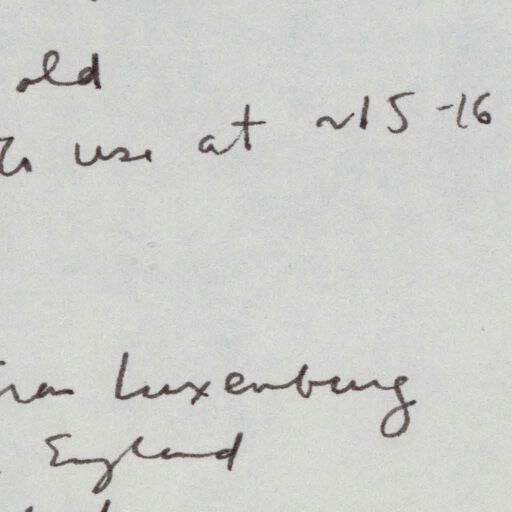 old
use at ~15-16
Luxenburg
England